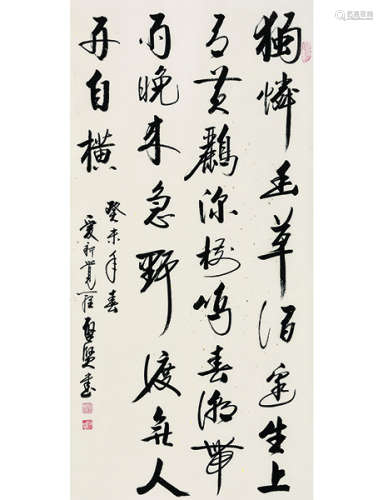 獨憐幽草澗邊生上
有黃鸝深樹鳴春潮帶
雨晚來急野渡無人
舟自橫
癸未年春
愛新覺羅書